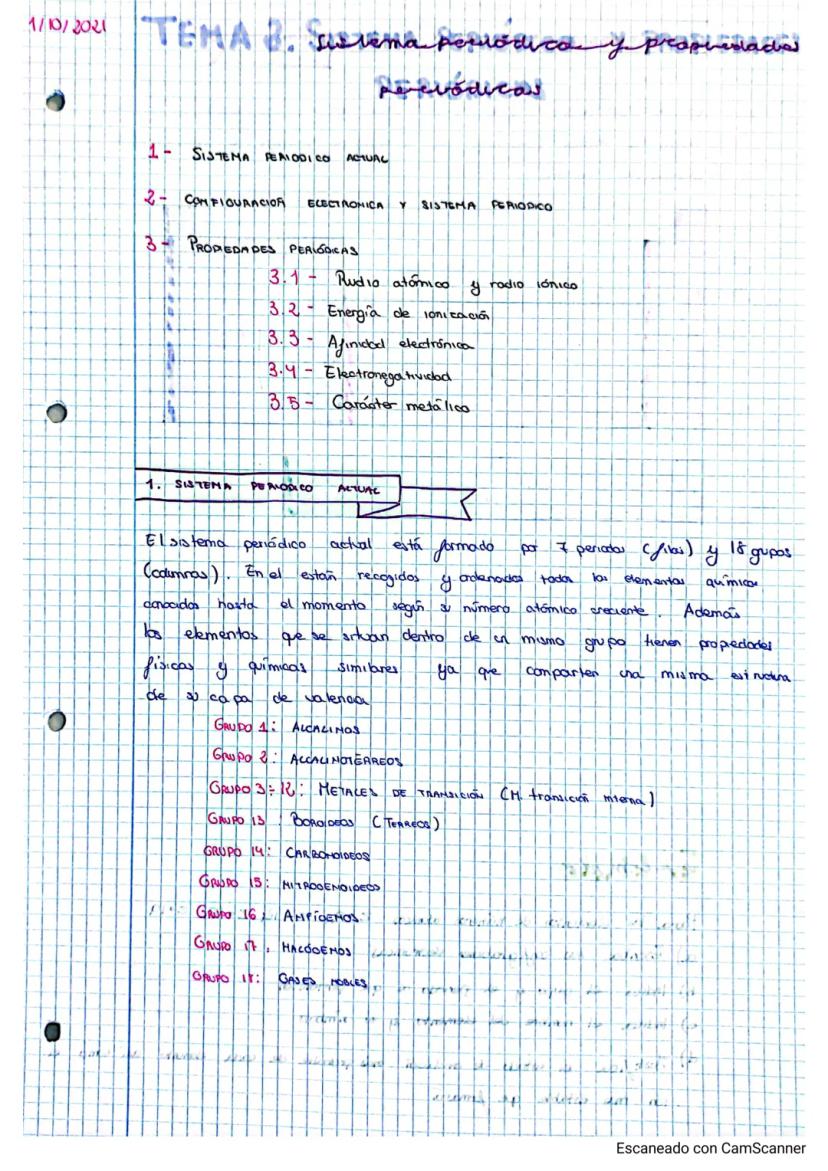 1/10/2021
TEMA 3. Sistema periódico y propiedades
periódicas
1- SISTEMA PERIODICO ACTUAL
2- CONFIGURACION ELECTRONICA Y SISTEMA PERIODICO
3- PROPIEDADES PERIÓDICAS
3.1- Radio atómico y radio iónico
3.2- Energía de ionización
3.3- Afinidad electrónica
3.4- Electronegatividad
3.5- Carácter metálico
1. SISTEMA PERIODICO ACTUAL
El sistema periódico actual está formado por 7 periodos (filas) y 18 grupos
(columnas). En el están recogidos y ordenados todos los elementos químicos
conocidos hasta el momento según su número atómico creciente. Además
los elementos que se situan dentro de un mismo grupo tienen propiedades
físicas y químicas similares ya que comparten una misma estructura
de su capa de valencia
GRUPO 1: ALCALINOS
GRUPO 2: ALCALINOTÉRREOS
GRUPO 3-12: METALES DE TRANSICIÓN (M. transición interna)
GRUPO 13: BOROIDEOS (TERREOS)
GRUPO 14: CARBONOIDEOS
GRUPO 15: NITROGENOIDEOS
GRUPO 16: ANFÍGENOS
GRUPO 17: HALÓGENOS
GRUPO 18: GASES NOBLES
Escaneado con CamScanner